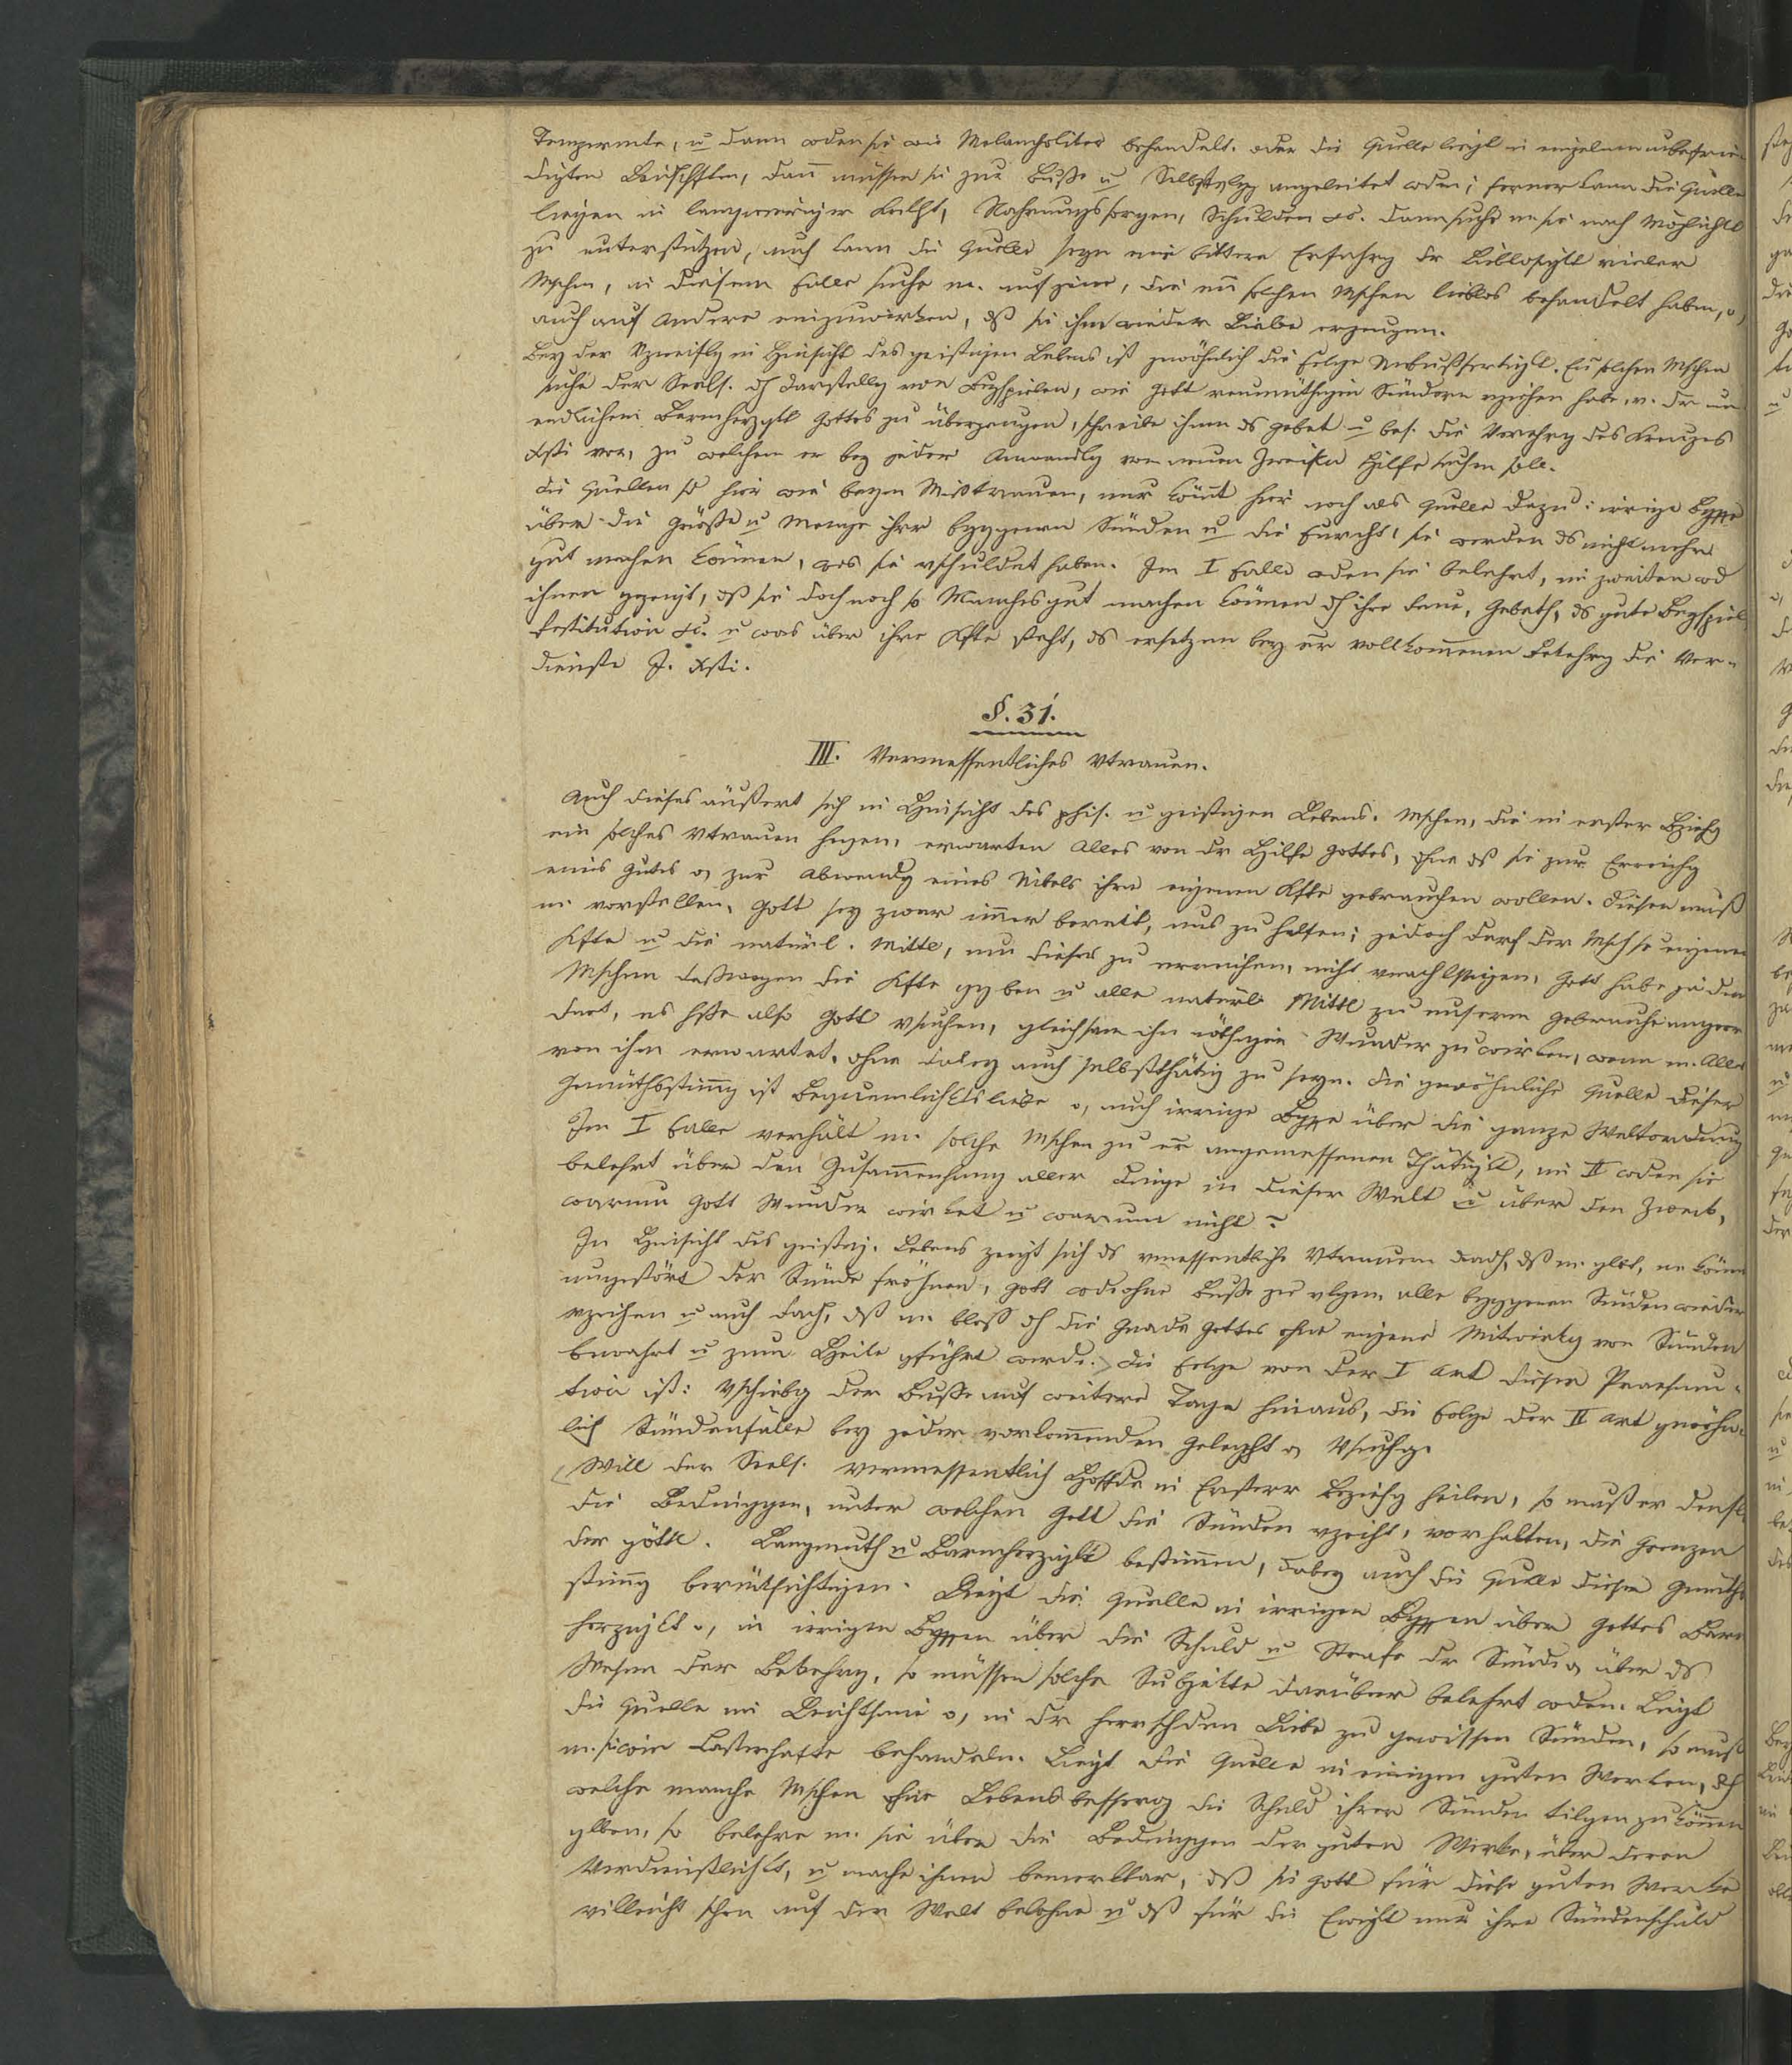 Temperamte, u dann wden sie wie Melancholiker behandelt. oder die Quelle liegt in einzelnen unbefrie-
digten Leidschften, dann müssen sie zur Buße u Selbst angeleitet wden; ferner kann die Quelle
liegen in langwieriger Krkht, Nahrungssorgen, Schulden &c. dann suche m sie nach Möglichkt
zu unterstützen, auch kann die Quelle seyn eine bittere Erfahrg dr Lieblosigkt vieler
Mschen, in diesem Falle suche m. auf jene, die einen solchen Mschen lieblos behandelt haben, o,
auch auf Andere einzuwirken, dß sie ihm wieder Liebe erzeugen.
Bey der Vzweiflg in Hinsicht des geistigen Lebens ist gewöhnlich die Folge Unbußfertigkt. Ein solchen Mschen
suche der Seels. dh Darstellg von Beyspielen, wie Gott reumüthigen Sündern vziehen habe, v. dr un-
endlichen Barmherzgkt Gottes zu überzeugen, schreibe ihnen ds Gebet u bes. die Verehrg des Kreuzes
Xsti vor, zu welchem er bey jeder Anwandlg von neuen Zweifeln Hilfe suchen soll.
Die Quellen sd hier wie beym Mißtrauen, nur kömmt hier noch als Quelle dazu: irrige Bgffe
über die Größe u Menge ihrer bggenen Sünden u die Furcht, sie werden ds nicht mehr
gut machen können, was sie vschuldet haben. Im I Falle wden sie belehrt, im zweiten wd
ihnen gezeigt, dß sie doch noch so Manches gut machen können dh ihre Reue, Gebeth, ds gute Beyspiel,
Restitution &c. u was über ihre Kfte steht, ds ersetzen bey er vollkommenen Bekehrg die Ver-
dienste J. Xsti.
§. 31.
III. Vermessentliches Vtrauen.
Auch dieses äußert sich in Hinsicht des phis. u geistigen Lebens. Mschen, die in erster Bziehg
ein solches Vtrauen hegen, erwarten Alles von dr Hilfe Gottes, ohne dß sie zur Erreichg
eines Gutes o, zur Abwendg eines Uibels ihre eigenen Kfte gebrauchen wollen. Diesen muß
m. vorstellen, Gott sey zwar immer bereit, uns zu helfen; jedoch darf der Msch se eigenen
Kfte u die natürl. Mittl, um dieses zu erreichen, nicht vnachlssigen, Gott habe ja den
Mschen deßwegen die Kfte ggben u alle natürl Mittl zu unserm Gebrauche angeor
dnet, es hße also Gott vsuchen, gleichsam ihn nöthigen Wunder zu wirken, wenn m. Alles
von ihm erwartet, ohne dabey auch selbstthätig zu seyn. Die gewöhnliche Quelle dieser
Gemüthsstimmg ist Bequemlichktsliebe o, auch irrige Bgffe über die ganze Weltordnung
Im I Falle verhält m. solche Mschen zu er angemessenen Thätigkt, im II wden sie
belehrt über den Zusammenhang aller Dinge in dieser Welt u über den Zweck,
warum Gott Wunder wirket u warum nicht?
In Hinsicht des geistig. Lebens zeigt sich ds vmessentliche Vtrauen dadh, dß m. glbt, m könne
ungestört der Sünde fröhnen, Gott wd ohne Buße zu alle bggenen Sünden wieder
vzeihen u auch dadh, dß m bloß dh die Gnade Gottes ohne eigene Mitwirkg von Sünden
bewahrt u zum Heile gführt werde. Die Folge von der I Art dieser Praesum-
tion ist: Vschiebg der Buße auf weitere Tage hinaus, die Folge der II Art gwöhn-
lich Sündenfälle bey jeder vorkommenden Geleght o, Vsuchg.
Will der Seels. vermessentlich Hoffde in Ersterer Beziehg heilen, so muß er densl
die Bedinggen, unter welchen Gott die Sünden vzeiht, vorhalten, die Grenzen
der göttl. Langmuth u Barmherzigkt bestimmen, dabey auch die Qulle dieser Gmüths
stimmg berücksichtigen. Liegt die Quelle in irrigen Bgffen über Gottes Barm
herzigkt o, in irrigen Bgffen über die Schuld u Strafe dr Sünde o, über ds
Wesen der Bekehrg, so müssen solche Subjekte darüber belehrt wden. Liegt
die Quelle im Leichtsinn o, in dr herrschden Liebe zu gewissen Sünden, so muß
m. sie wie Lasterhafte behandeln. Liegt die Quelle in einigen guten Werken, dh
welche manche Mschen ohne Lebensbesserg die Schuld ihrer Sünden tilgen zu können
glben, so belehre m. sie über die Bedinggen der guten Werke, über deren
Verdienstlichkt, u mache ihnen bemerkbar, dß sie Gott für diese guten Werke
villeicht schon auf der Welt belohne u dß für die Ewigkt nur ihre Sündenschuld